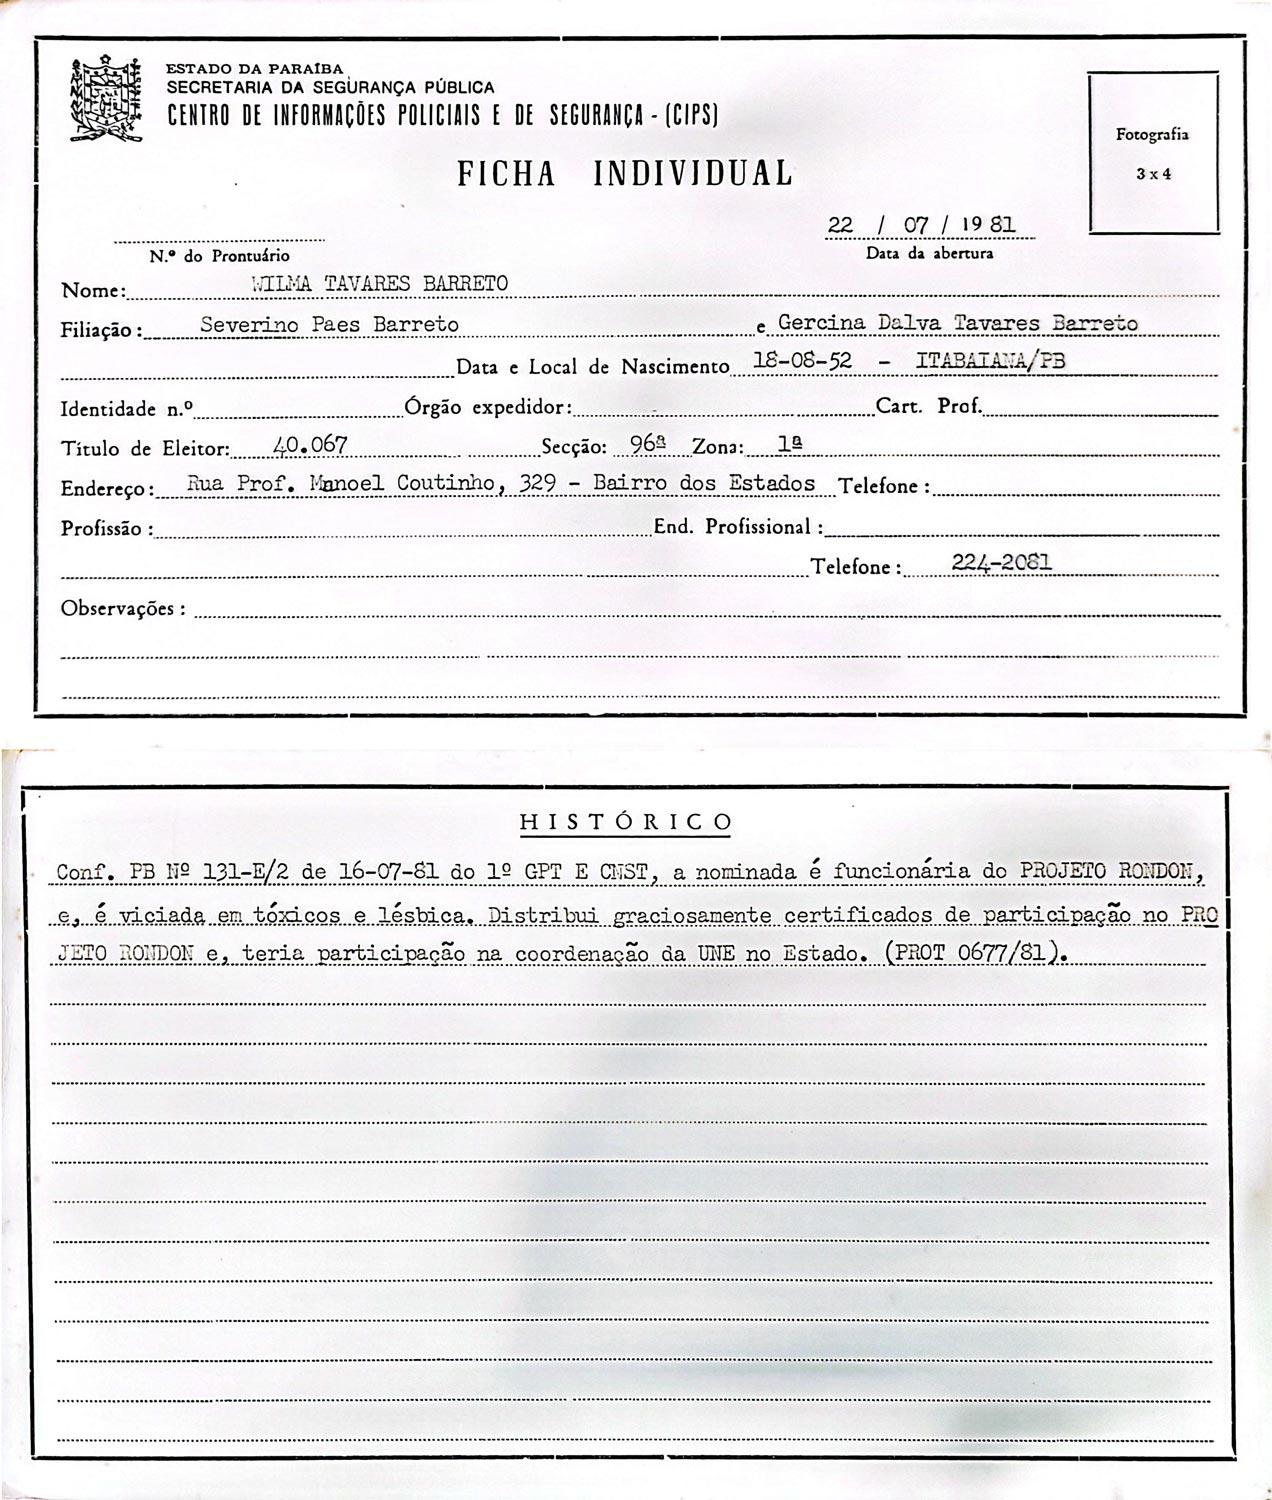 ESTADO DA PARAÍBA
SECRETARIA DA SEGURANÇA PÚBLICA
CENTRO DE INFORMAÇÕES POLICIAIS E DE SEGURANÇA - (CIPS)
Fotografia
3 x 4
FICHA INDIVIDUAL
22 / 07 / 19 81
N.º do Prontuário Data da abertura
Nome: WILMA TAVARES BARRETO
Filiação: Severino Paes Barreto e Gercina Dalva Tavares Barreto
Data e Local de Nascimento 18-08-52 - ITABAIANA/PB
Identidade n.º Órgão expedidor: Cart. Prof.
Título de Eleitor: 40.067 Secção: 96ª Zona: 1ª
Endereço: Rua Prof. Manoel Coutinho, 329 - Bairro dos Estados Telefone:
Profissão: End. Profissional:
Telefone: 224-2081
Observações:
HISTÓRICO
Conf. PB Nº 131-E/2 de 16-07-81 do 1º GPT E CNST, a nominada é funcionária do PROJETO RONDON,
e, é viciada em tóxicos e lésbica. Distribui graciosamente certificados de participação no PRO
JETO RONDON e, teria participação na coordenação da UNE no Estado. (PROT 0677/81).